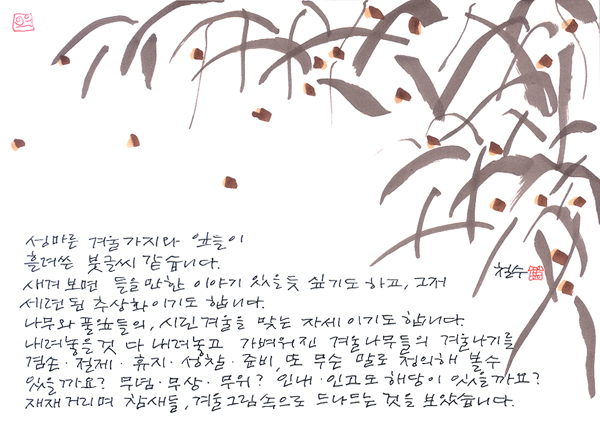 성마른 겨울가지와 잎들이
흘려쓴 붓글씨 같습니다.
새겨 보면 들을만한 이야기 있을듯 싶기도 하고, 그저
세련된 추상화이기도 합니다.
철수
나무와 풀잎들의, 시린겨울을 맞는 자세이기도 합니다.
내려놓을것 다 내려놓고 가벼워진 겨울나무들의 겨울나기를
겸손·절제·휴지·성찰·준비, 또 무슨 말로 정의해 볼수
있을까요? 무념·무상·무위? 인내·인고도 해당이 있을까요?
재재거리며 참새들, 겨울그림속으로 드나드는 것을 보았습니다.